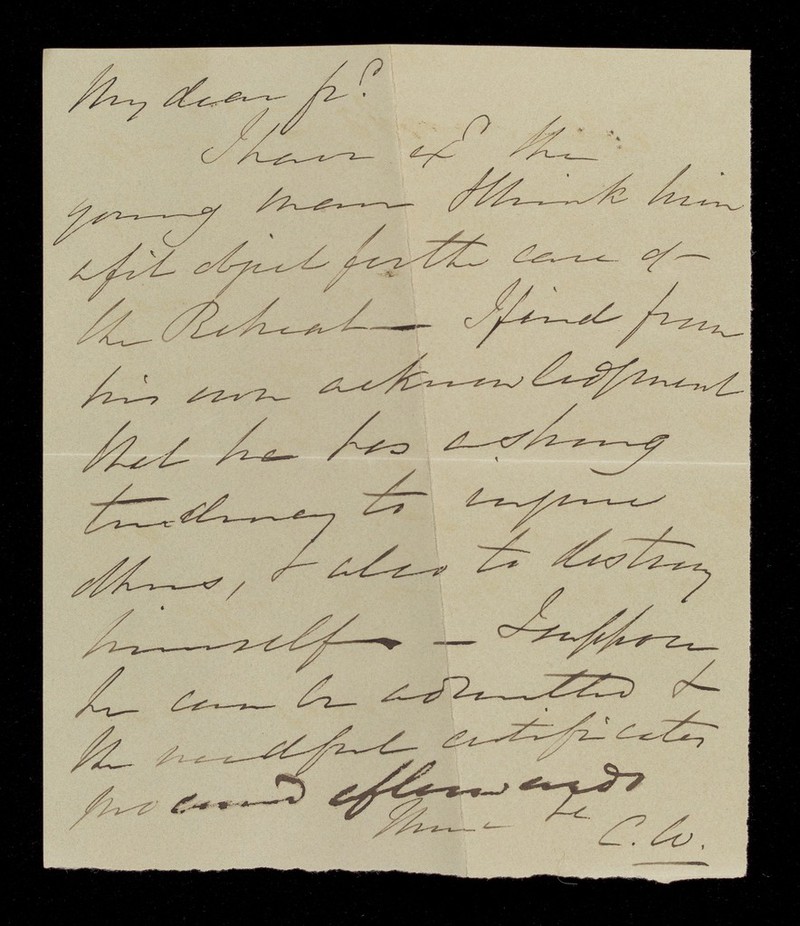 My dear frd
I have exd the
young man & think him
a fit object for the care of
the Retreat — I find from
his own acknowledgment
that he has a strong
tendency to injure
others, & also to destroy
himself — I suppose
he can be admitted &
the needful certificates
procured afterwards
C. W.